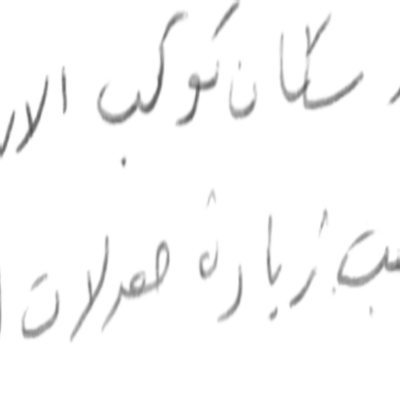 سكان كوكب الار
زيادة معدلات